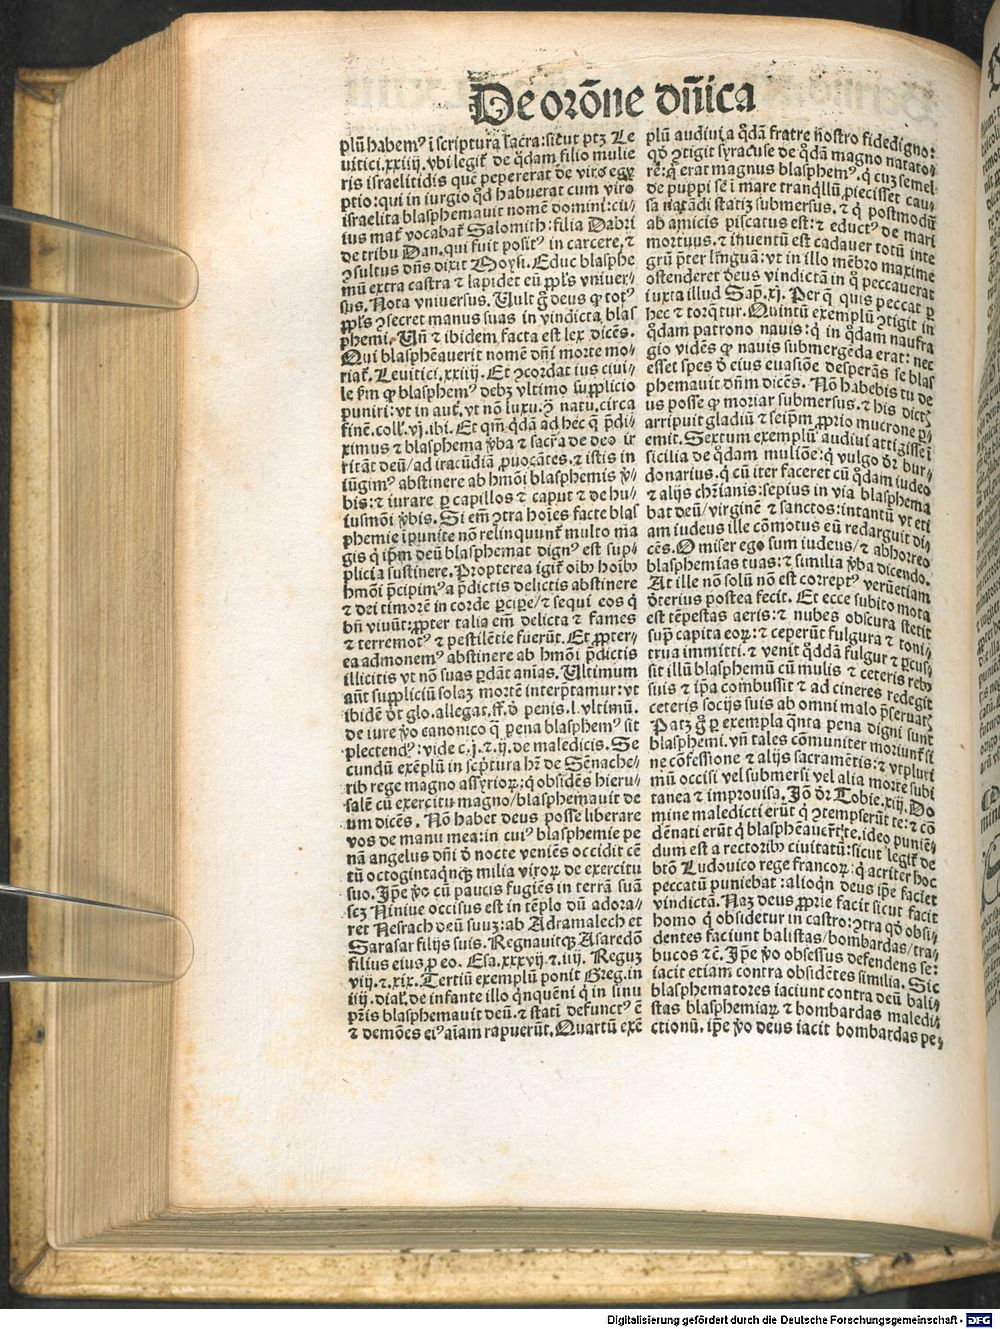 De orōne dn̄ica
plū habemꝰ ī scriptura sacra: sicut ptꝫ Le
uitici.xxiiij. vbi legit̄ de q̄dam filio mulie
ris israelitidis que pepererat de viro egy
ptio: qui in iurgio qd̄ habuerat cum viro
israelita blasphemauit nomē domini: cu⸗
ius mat̄ vocabat̄ Salomith: filia Dabri
de tribu Dan. qui fuit positꝰ in carcere. ⁊
ꝯsultus dn̄s dixit Moysi. Educ blasphe
mū extra castra ⁊ lapidet eū ppl̄s vniuer⸗
sus. Nota vniuersus. Uult g̊ deus ꝙ totꝰ
ppl̄s ꝯsecret manus suas in vindicta blas
phemi. Un̄ ⁊ ibidem facta est lex dicēs.
Qui blasphēauerit nomē dn̄i morte mo⸗
riat̄. Leuitici.xxiiij. Et ꝯcordat ius ciui⸗
le ẜm ꝙ blasphemꝰ debꝫ vltimo supplicio
puniri: vt in aut̄. vt nō luxu. ꝯ̄ natu. circa
finē. coll̄. vj. ibi. Et qm̄ q̄dā ad hec q̄ p̄di⸗
ximus ⁊ blasphema v̄ba ⁊ sacr̄a de deo ir
ritāt deū/ad iracūdiā ꝓuocātes. ⁊ istis in
iūgimꝰ abstinere ab hm̄oi blasphemis v̄⸗
bis: ⁊ iurare ꝑ capillos ⁊ caput ⁊ de hu⸗
iusmōi v̄bis. Si em̄ ꝯtra hoīes facte blas
phemie īpunite nō relinquunt̄ multo ma
gis q̄ ip̄m deū blasphemat dignꝰ est sup⸗
plicia sustinere. Propterea igit̄ oībꝰ hoībꝰ
hmōi p̄cipimꝰ a p̄dictis delictis abstinere
⁊ dei timorē in corde ꝑcipe/⁊ sequi eos q̄
bn̄ viuūt: ꝓpter talia em̄ delicta ⁊ fames
⁊ terremotꝰ ⁊ pestilētie fuerūt. Et ꝓpter⸗
ea admonemꝰ abstinere ab hmōi p̄dictis
illicitis vt nō suas ꝑdāt aīas. Ultimum
aūt suppliciū solaꝫ mortē interp̄tamur: vt
ibidē dt̄ glo. allegat. ff. d̄ penis. l. vltimū.
de iure v̄o canonico q̄ pena blasphemꝰ sit
plectendꝰ: vide c. j. ⁊. ij. de maledicis. Se
cundū exēplū in scp̄tura hr̄ de Sēnache⸗
rib rege magno assyrioꝝ: q̄ obsidēs hieru⸗
salē cū exercitu magno/blasphemauit de
um dicēs. Nō habet deus posse liberare
vos de manu mea: in cuiꝰ blasphemie pe
nā angelus dn̄i d̄ nocte veniēs occidit cē
tū octogintaqnꝗꝫ milia viroꝝ de exercitu
suo. Ip̄e v̄o cū paucis fugiēs in terrā suā
scꝫ Niniue occisus est in tēplo dū adora⸗
ret Nesrach deū suuꝫ: ab Adramalech et
Sarasar filijs suis. Regnauitqꝫ Asaredō
filius eius ꝓ eo. Esa. xxxvij. ⁊. iiij. Reguꝫ
viij. ⁊. xix. Tertiū exemplū ponit Greg. in
iiij. dial̄. de infante illo q̄nquēni q̄ in sinu
pr̄is blasphemauit deū. ⁊ statī defunctꝰ ē
⁊ demōes eiꝰ aīam rapuerūt. Quartū exē
plū audiui a q̄dā fratre n̄ostro fidedigno:
qd̄ ꝯtigit syracuse de q̄dā magno natato⸗
re: q̄ erat magnus blasphemꝰ. q̄ cuꝫ semel
de puppi se ī mare tranq̄llū ꝓiecisset cau⸗
sa natādi statiꝫ submersus. ⁊ q̄ postmodū
ab amicis piscatus est: ⁊ eductꝰ de mari
mortuus. ⁊ inuentū est cadauer totū inte
grū p̄ter linguā: vt in illo mēbro maxime
ostenderet deus vindictā in q̄ peccauerat
iuxta illud Sap̄. xj. Per q̄ quis peccat ꝑ
hec ⁊ torq̄tur. Quintū exemplū ꝯtigit in
q̄dam patrono nauis: q̄ in q̄dam naufra
gio vidēs ꝙ nauis submergēda erat: nec
esset spes d̄ eius euasiōe desperās se blas
phemauit dn̄m dicēs. Nō habebis tu de
us posse ꝙ moriar submersus. ⁊ his dictꝭ
arripuit gladiū ⁊ seip̄m ꝓprio mucrone ꝑ⸗
emit. Sextum exemplū audiui attigisse ī
sicilia de q̄dam muliōe: q̄ vulgo dr̄ bur⸗
donarius. q̄ cū iter faceret cū q̄dam iudeo
⁊ alijs chr̄ianis: sepius in via blasphema
bat deū/virginē ⁊ sanctos: intantū vt eti
am iudeus ille cōmotus eū redarguit di⸗
cēs. O miser ego sum iudeus/⁊ abhorreo
blasphemias tuas: ⁊ similia v̄ba dicendo.
At ille nō solū nō est correptꝰ verūetiam
d̄terius postea fecit. Et ecce subito mota
est tēpestas aeris: ⁊ nubes obscura stetit
sup̄ capita eoꝝ: ⁊ ceperūt fulgura ⁊ toni⸗
trua immitti. ⁊ venit q̄ddā fulgur ⁊ ꝑcus⸗
sit illū blasphemū cū mulis ⁊ ceteris rebꝰ
suis ⁊ ip̄a combussit ⁊ ad cineres redegit
ceteris socijs suis ab omni malo p̄seruatꝭ
Patꝫ g̊ ꝑ exempla q̄nta pena digni sunt
blasphemi. vn̄ tales cōmuniter moriunt̄ si
ne cōfessione ⁊ alijs sacramētis: ⁊ vtpluri
mū occisi vel submersi vel alia morte subi
tanea ⁊ improuisa. Iō dr̄ Tobie. xiij. Do
mine maledicti erūt q̄ ꝯtempserūt te: ⁊ cō
dēnati erūt q̄ blasphēauer̄t te. ideo puniē⸗
dum est a rectoribꝰ ciuitatū: sicut legit̄ de
btō Ludouico rege francoꝝ: q̄ acriter hoc
peccatū puniebat: alioqn̄ deus ip̄e faciet
vindictā. Naꝫ deus ꝓprie facit sicut facit
homo q̄ obsidetur in castro: ꝯtra qd̄ obsi⸗
dentes faciunt balistas/bombardas/tra⸗
bucos ⁊ cē. Ip̄e v̄o obsessus defendens se:
iacit etiam contra obsidētes similia. Sic
blasphematores iaciunt contra deū bali⸗
stas blasphemiaꝝ ⁊ bombardas maledi⸗
ctionū. ip̄e v̄o deus iacit bombardas pe⸗
Digitalisierung gefördert durch die Deutsche Forschungsgemeinschaft - DFG